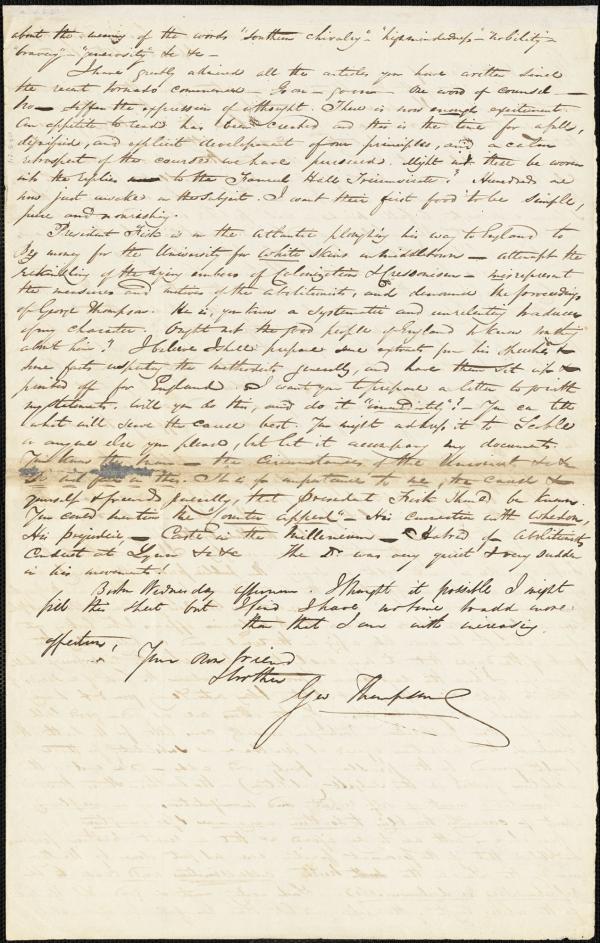 about the meaning of the words "Southern chivalry" - "highmindedness" - "nobility" -
"bravery" - "generosity" &c &c -
I have greatly admired all the articles you have written since
the recent tornado commenced - Go on - go on - One word of counsel -
No - suffer the expression of a thought. There is now enough excitement.
An appetite to read has been created and this is the time for a full,
dignified, and explicit development of our principles, and a calm
retrospect of the course we have pursued. Might not these be woven
into the replies to the Faneuil Hall Triumvirate? Hundreds are
now just awake on the subject. I want their first food to be simple,
pure and nourishing.
President Fisk is on the Atlantic ploughing his way to England to
beg money for the University for white skins in Middletown - attempt the
rekindling of the dying embers of Colonization & Cressonism - misrepresent
the measures and motives of the abolitionists, and denounce the proceedings
of George Thompson. He is, you know a systematic and unrelenting traducer
of my character. Ought not the good people of England to know something
about him? I believe I shall prepare some extracts from his speeches &
some facts respecting the Methodists generally, and have them set up &
printed off for England. I want you to prepare a letter to go with
my statements. Will you do this, and do it "immediately"? - You can tell
what will serve the cause best. You might address it to
or anyone else you please, but let it accompany my documents.
the circumstances of the &c &c
Do not fail in this. It is of importance to me, the cause &
yourself & friends generally, that President Fisk should be known.
You could mention the "Counter appeal" - His connection with Whedon,
His prejudices - Caste in the Millenium - Hatred of Abolitionists
Conduct at Lynn &c &c The Dr was very quiet & very sudden
in his movements!
Boston Wednesday afternoon. I thought it possible I might
fill this sheet but I find I have no time to add more
than that I am with increasing
affection,
Your own friend
& brother
Geo Thompson